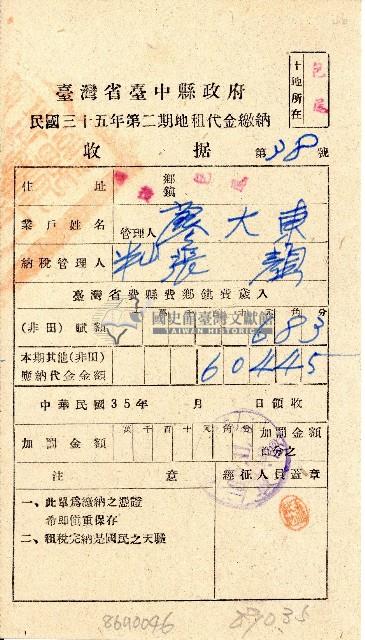 土地所在
臺灣省臺中縣政府
民國三十五年第二期地租代金繳納
收據 第 38 號
住址 鄉鎮
業戶姓名 管理人 大東
納稅管理人 張
臺灣省費縣費鄉鎮費歲入
(非田)賦額 683
本期其他(非田)應納代金金額 60445
國史館臺灣文獻館
TAIWAN HISTORICA
中華民國35年 月 日領收
加罰金額 萬千百十元角分 加罰金額百分之
注意 經征人員蓋章
一、此單為繳納之憑證
希即慎重保存
二、租稅完納是國民之天職
8690046
87035